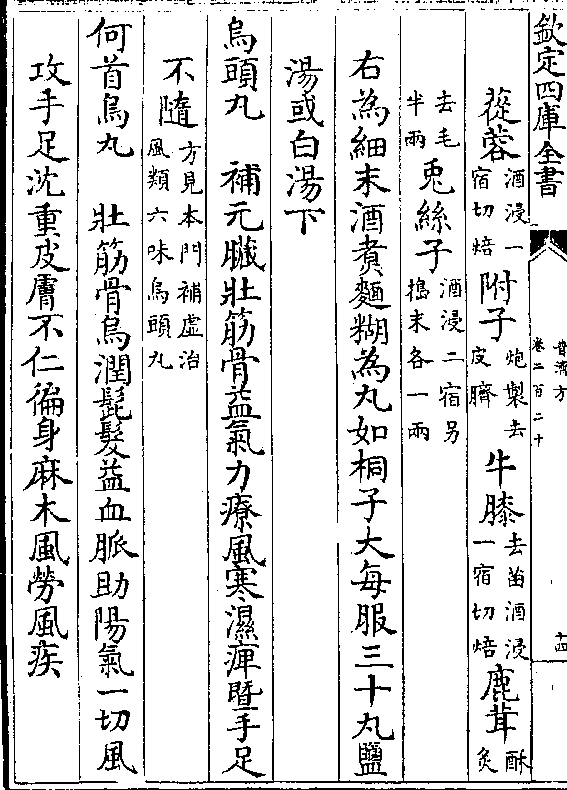 欽定四庫全書
普濟方
卷二百二十
十四
蓯蓉酒浸一宿切焙附子炮製去皮臍牛膝去苗酒浸一宿切焙鹿茸酥炙
去毛半兩兎絲子酒浸二宿另搗末各一兩
右為細末酒煑麵糊為丸如桐子大每服三十丸鹽
湯或白湯下
烏頭丸　補元臟壯筋骨益氣力療風寒濕痺暨手足
不隨方見本門補虛治風類六味烏頭丸
何首烏丸　壯筋骨烏潤髭髮益血脈助陽氣一切風
攻手足沈重皮膚不仁徧身麻木風勞風疾